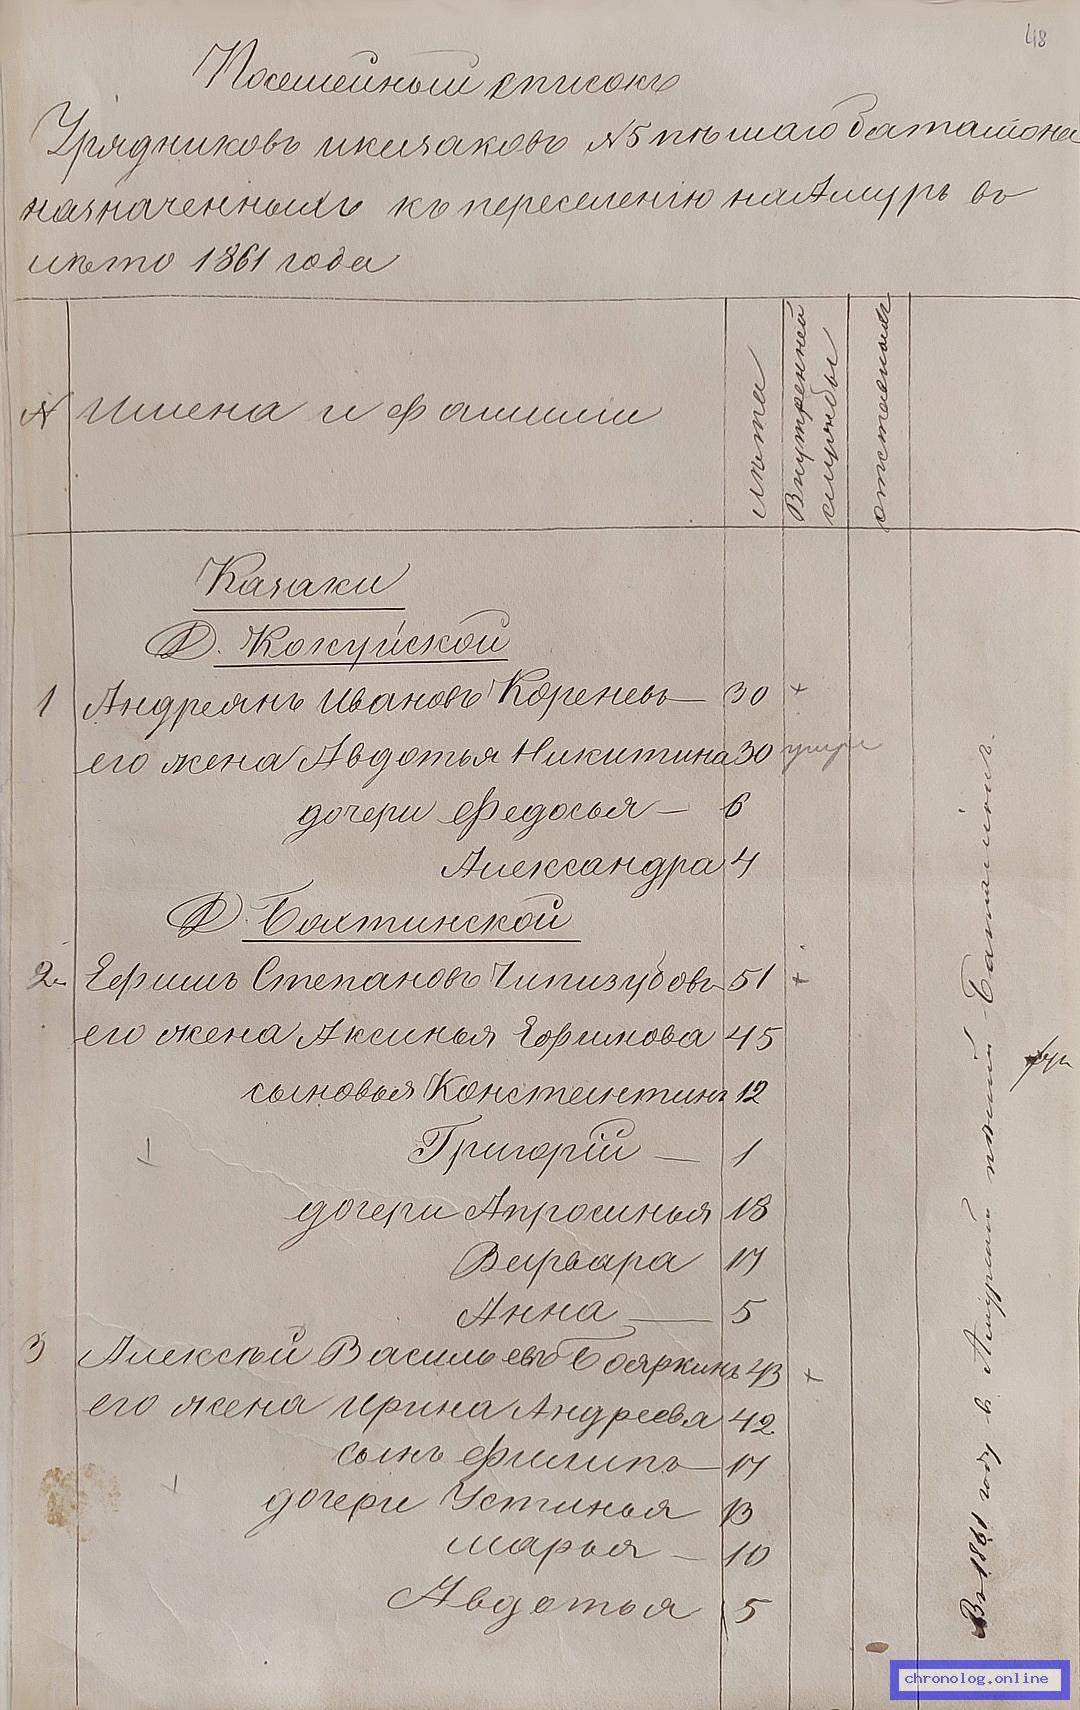 48
Посемейный списокъ
Урядниковъ и казаковъ №5 пѣшаго баталiона
назначенныхъ къ переселенiю на Амуръ въ
лѣто 1861 года
№ Имена и фамилiи
лѣта
Внутренней
службы
отставныя
Казаки
Д. Кокуйской
1 Андреянъ Ивановъ Кореневъ — 30 +
его жена Авдотья Никитина 30 умре
дочери Федосья — 6
Александра 4
Д. Боятинской
2й Ефимъ Степановъ Чипизубовъ 51 +
его жена Аксинья Ефимова 45
сыновья Константинъ 12
Григорiй — 1
дочери Апросинья 18
Варвара 17
Анна — 5
3 Алексѣй Васильевъ Бояркинъ 43 +
его жена Ирина Андреева 42
сынъ Филипъ — 17
дочери Устинья 13
Марья — 10
Авдотья 5
Въ 1861 году в Амурский пеший Баталион.
chronolog.online